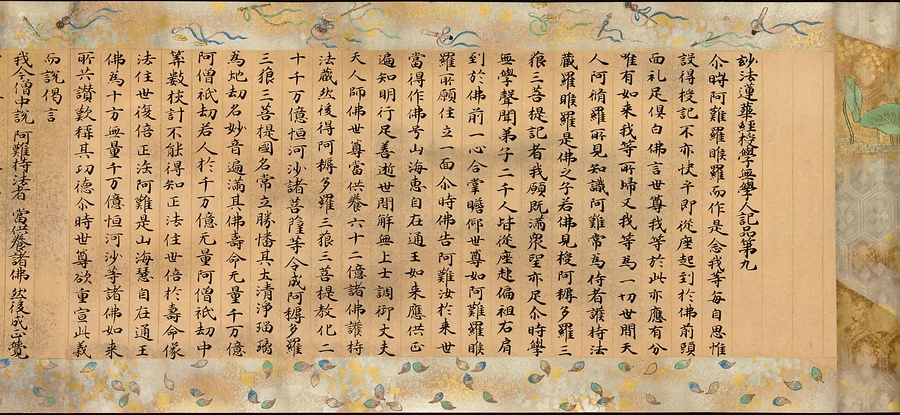 妙法蓮華經授學無學人記品第九
尒時阿難羅睺羅而作是念我等每自思惟
設得授記不亦快乎即從座起到於佛前頭
面礼足俱白佛言世尊我等於此亦應有分
唯有如来我等所歸又我等為一切世間天
人阿脩羅所見知識阿難常為侍者護持法
蔵羅睺羅是佛之子若佛見授阿耨多羅三
藐三菩提記者我願既滿衆望亦足尒時學
無學聲聞弟子二千人皆從座起偏袒右肩
到於佛前一心合掌瞻仰世尊如阿難羅睺
羅所願住立一面尒時佛告阿難汝於来世
當得作佛号山海惠自在通王如来應供正
遍知明行足善逝世間解無上士調御丈夫
天人師佛世尊當供養六十二億諸佛護持
法蔵然後得阿耨多羅三藐三菩提教化二
十千万億恒河沙諸菩薩等令成阿耨多羅
三藐三菩提國名常立勝幡其土清淨瑠璃
為地劫名妙音遍滿其佛壽命无量千万億
阿僧祇劫若人於千万億无量阿僧祇劫中
筭數校計不能得知正法住世倍於壽命像
法住世復倍正法阿難是山海慧自在通王
佛為十方無量千万億恒河沙等諸佛如来
所共讃歎稱其功德尒時世尊欲重宣此義
而說偈言
我今僧中說 阿難持法者 當供養諸佛 然後成正覺